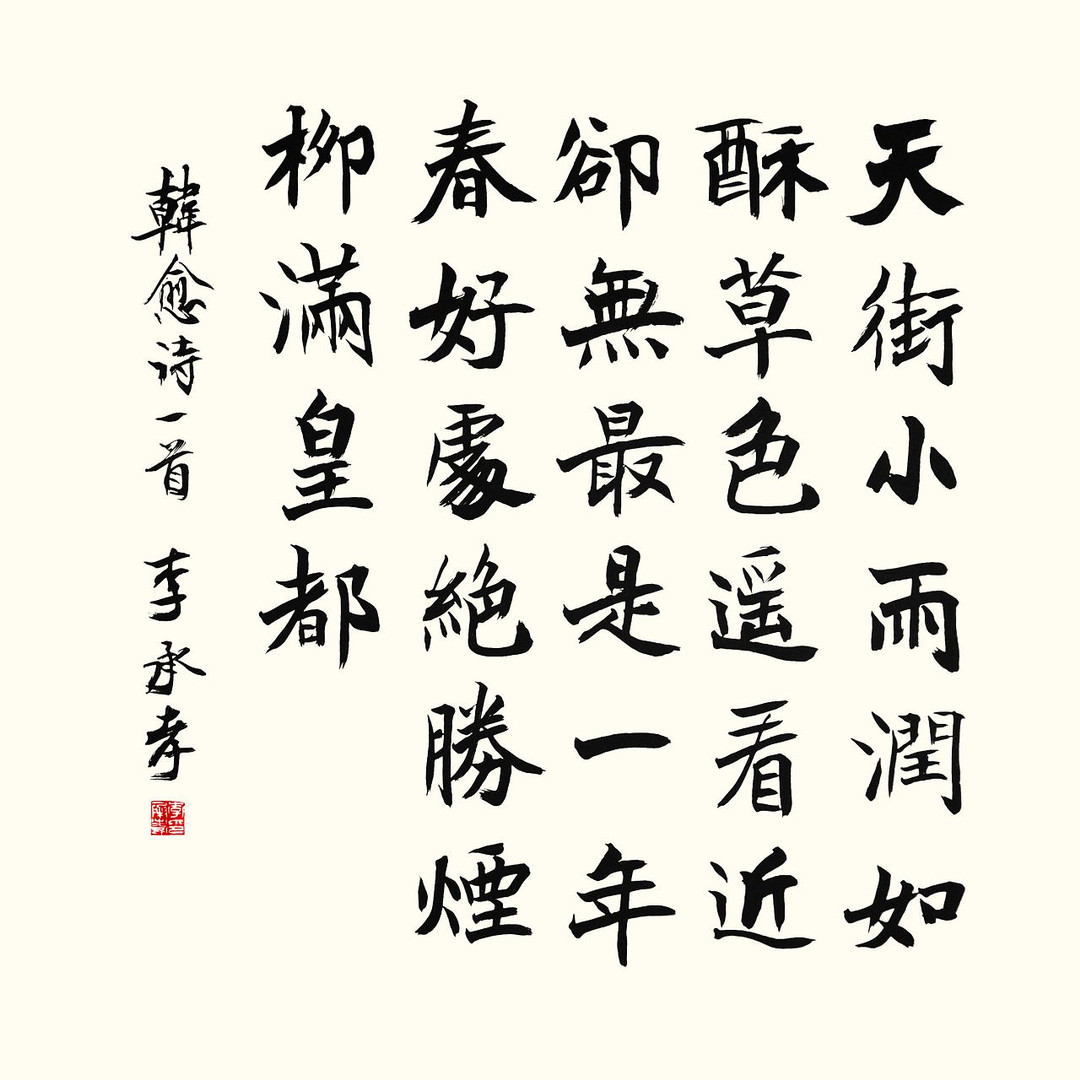 天街小雨潤如
酥草色遥看近
卻無最是一年
春好處絕勝煙
柳滿皇都
韓愈诗一首 李承孝